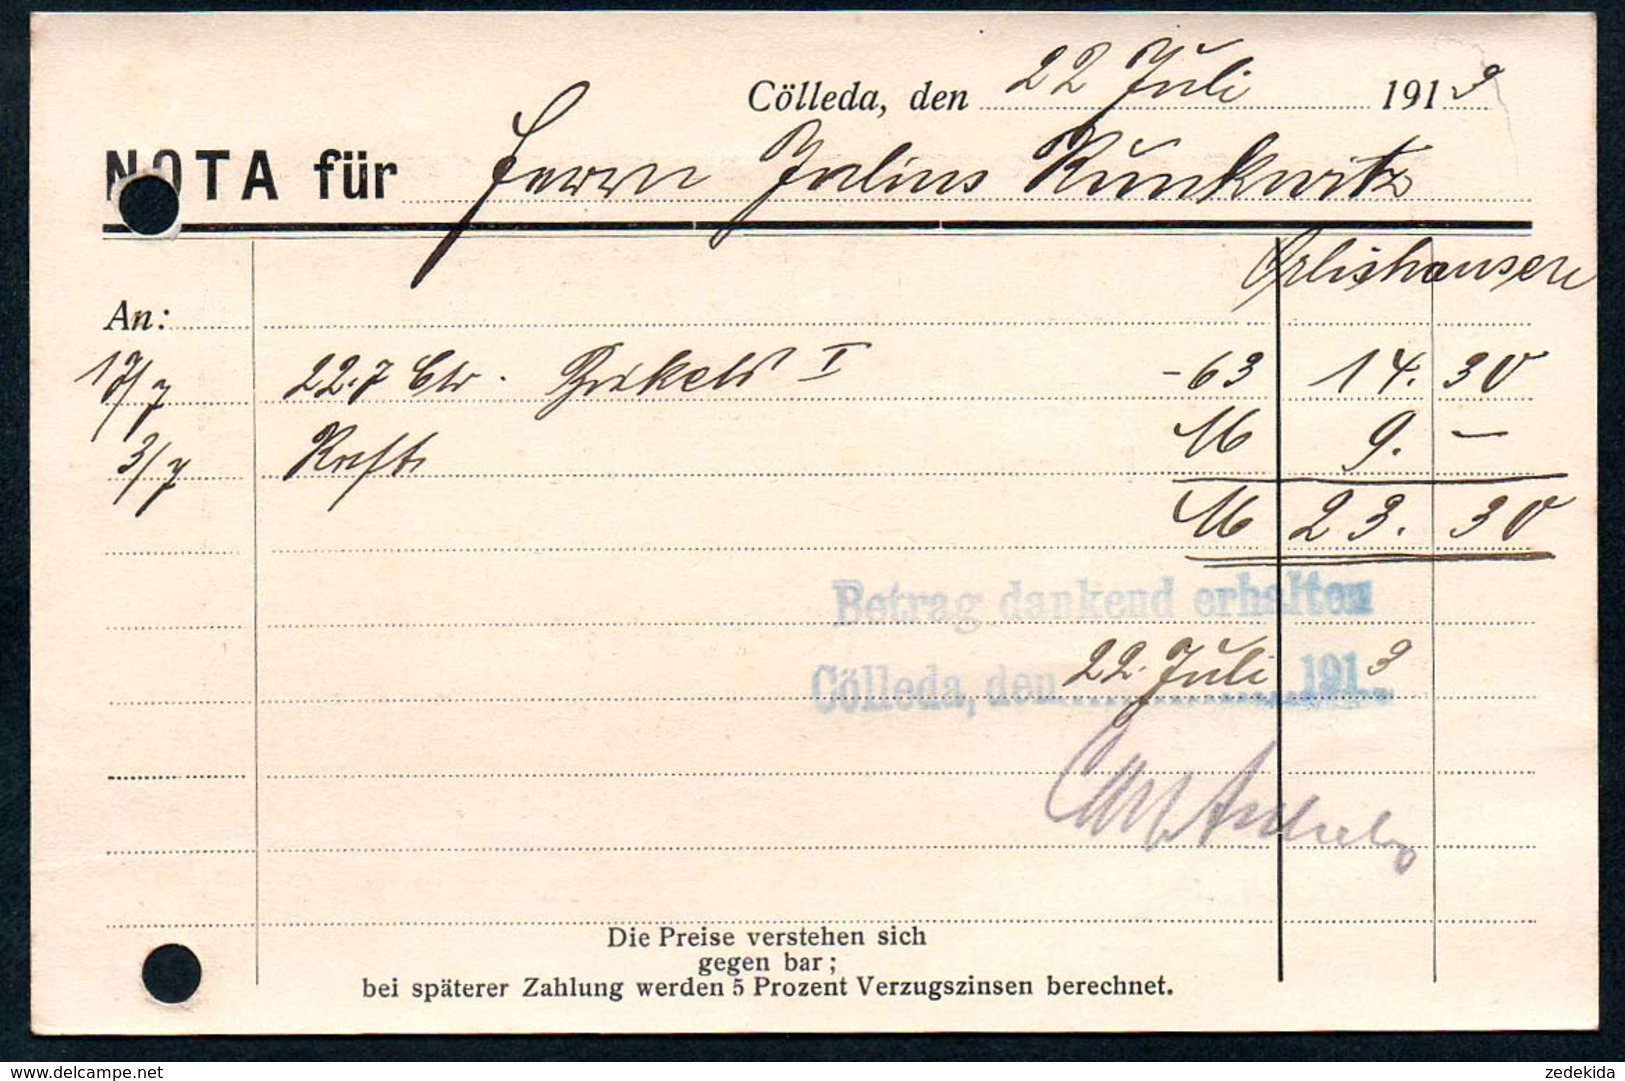 Cölleda, den 22 Juli 1913
NOTA für Herrn Julius Kunkwitz
Orlishausen
An:
17/7 22.7 Ctr. Brikets I -63 14.30
3/7 M 9.—
M 23.30
Betrag dankend erhalten
Cölleda, den 22. Juli 1913
Die Preise verstehen sich
gegen bar;
bei späterer Zahlung werden 5 Prozent Verzugszinsen berechnet.
www.delcampe.net
zedekida